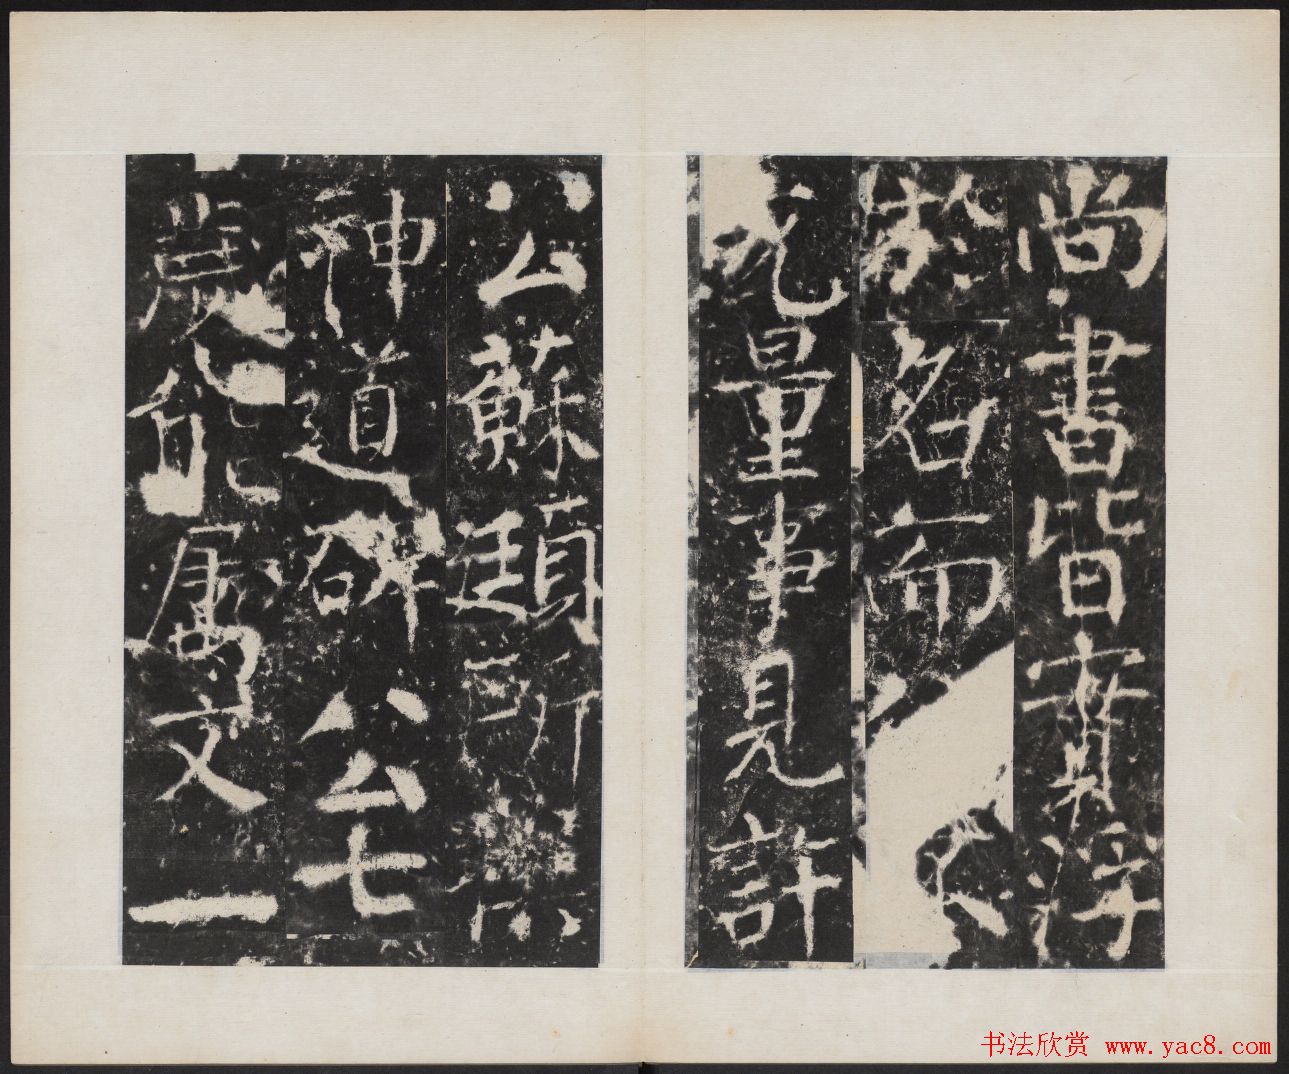 尚書皆浮
於名而
量事見許
公蘇頲所
神道碑公七
歲能屬文一
书法欣赏 www.yac8.com